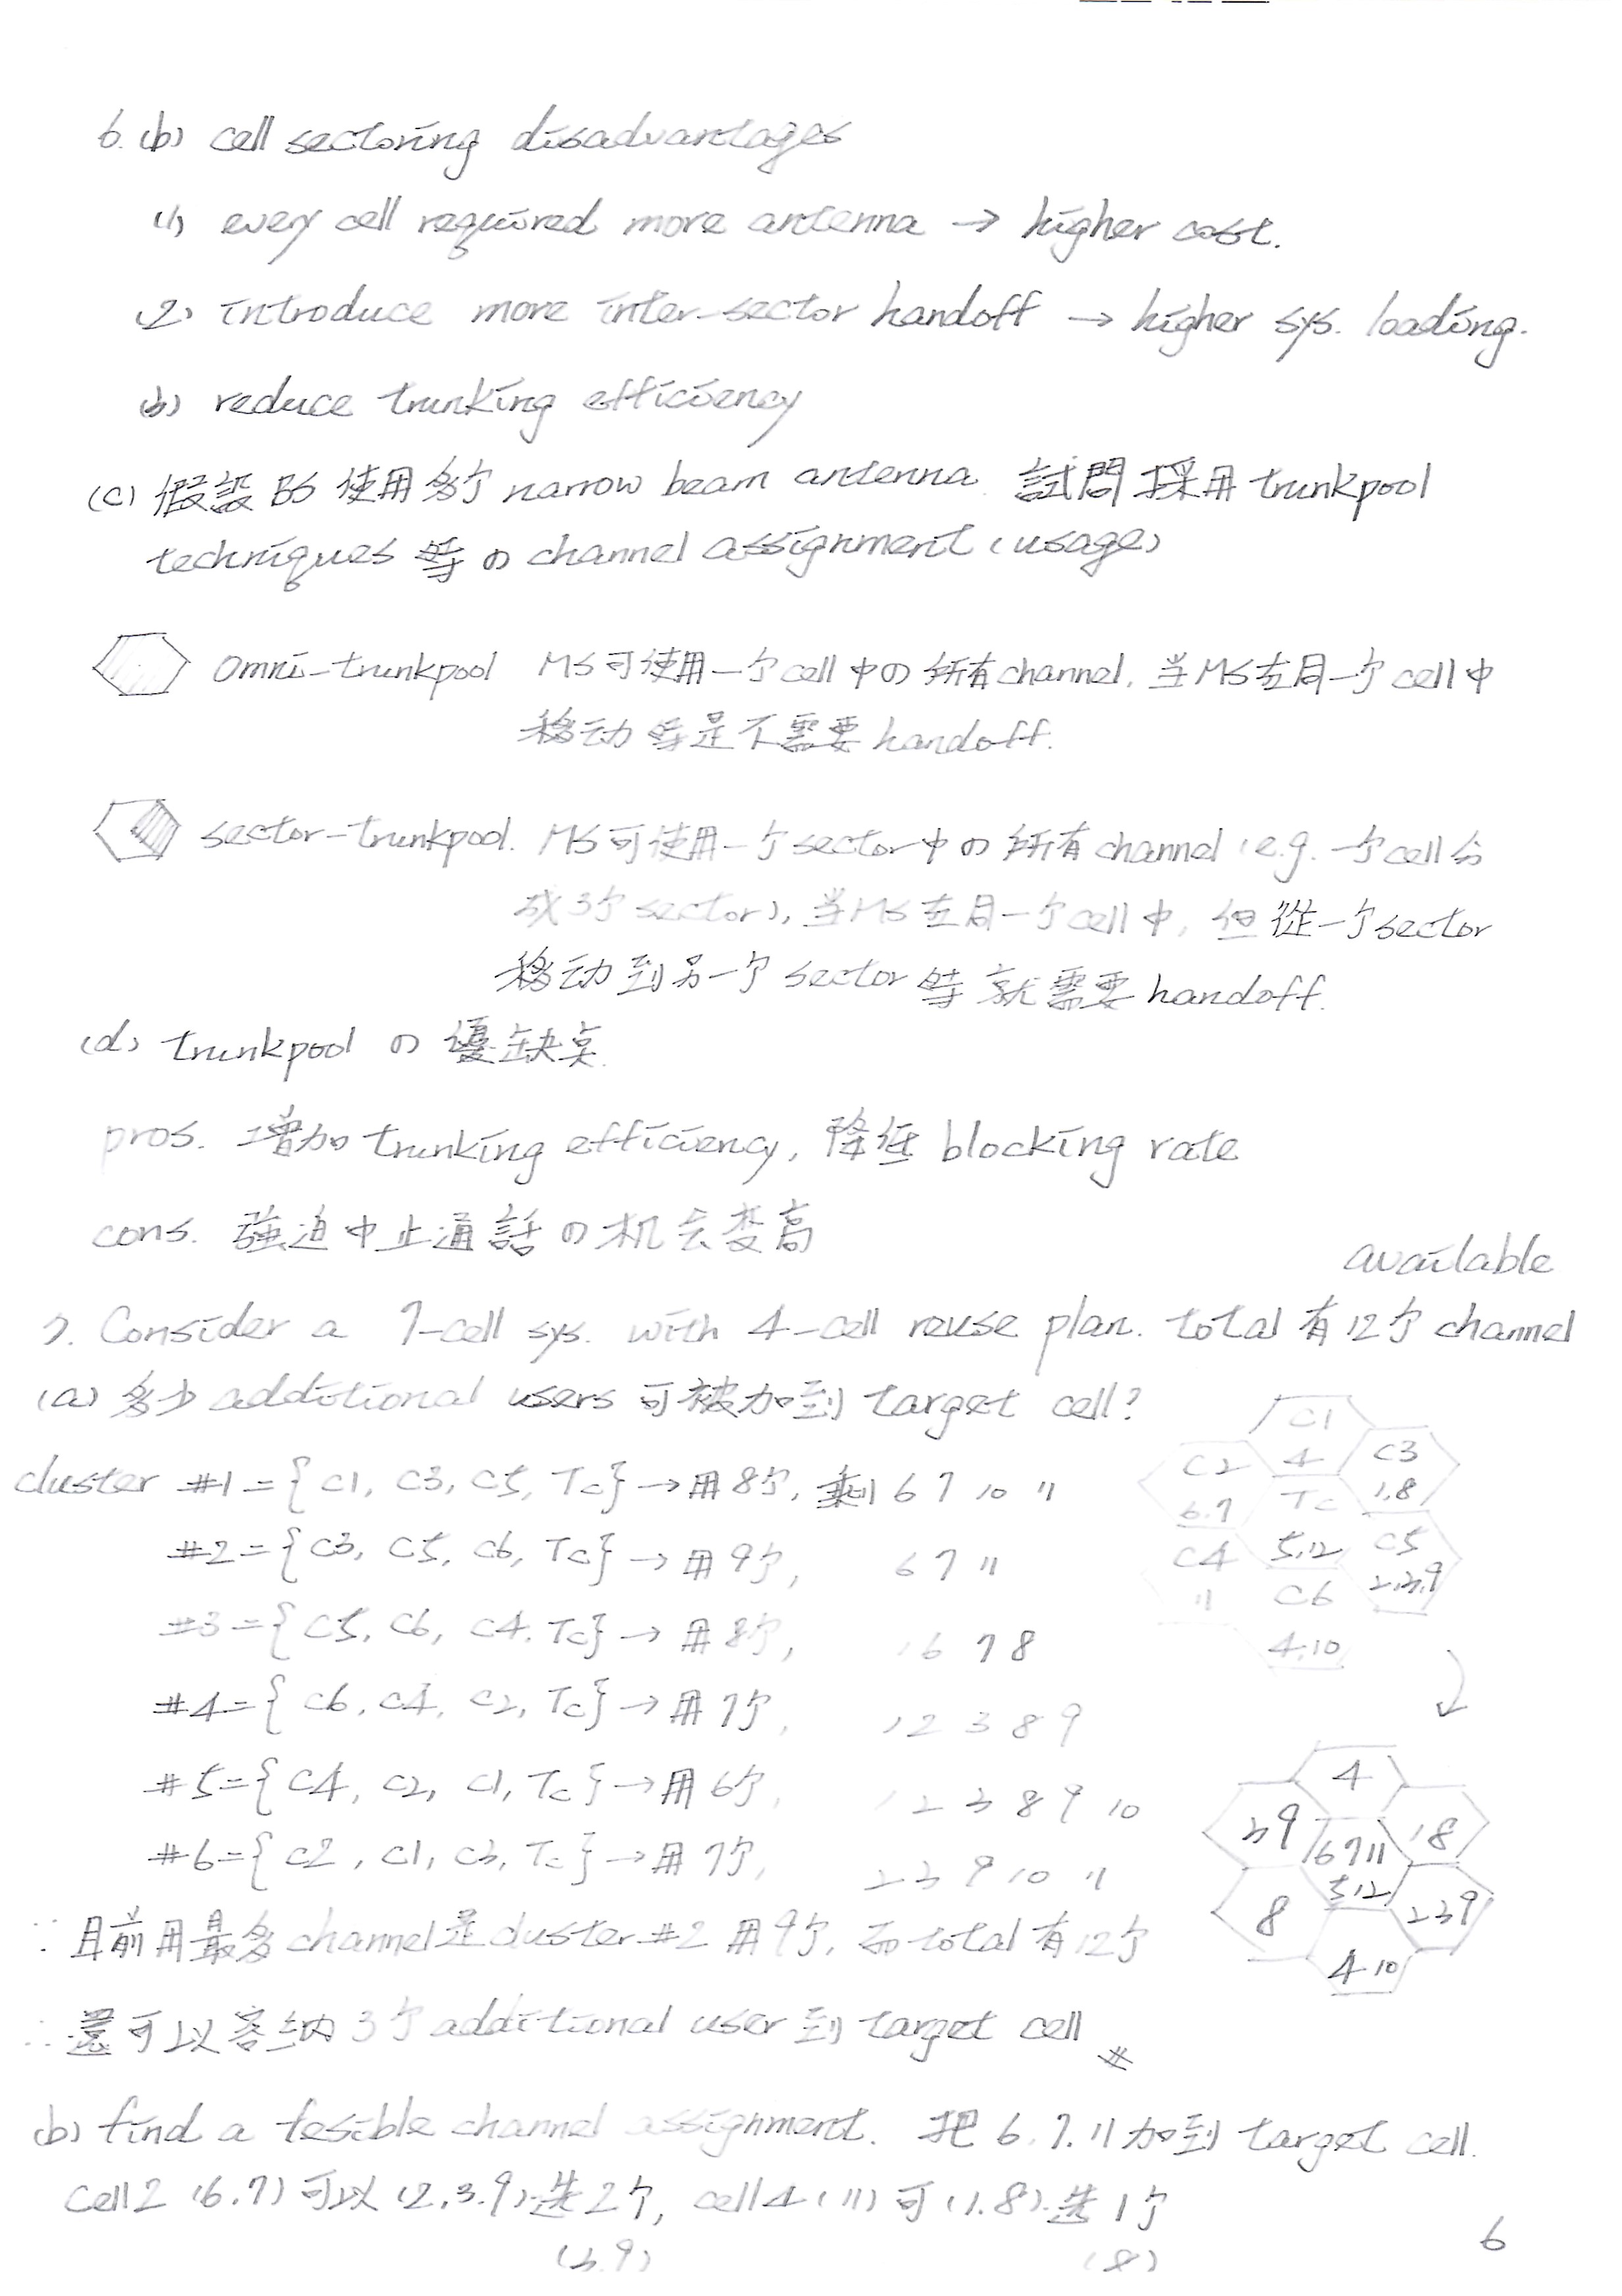 6. (b) cell sectoring disadvantages
(1) every cell required more antenna → higher cost.
(2) introduce more inter-sector handoff → higher sys. loading.
(3) reduce trunking efficiency
(c) 假設 BS 使用多个 narrow beam antenna. 試問採用 trunkpool
techniques 時の channel assignment (usage)
Omni-trunkpool MS可使用一个cell中の所有channel. 当MS在同一个cell中
移动時是不需要handoff.
sector-trunkpool. MS可使用一个sector中の所有channel (e.g. 一个cell分
成3个sector), 当MS在同一个cell中, 但從一个sector
移动到另一个sector時就需要handoff.
(d) trunkpool の優缺点.
pros. 增加trunking efficiency, 降低blocking rate
cons. 強迫中止通話の机会变高
available
7. Consider a 7-cell sys. with 4-cell reuse plan. total 有12个channel
(a) 多少additional users 可被加到 target cell?
C1
4
C2
6.7
C3
1.8
Tc
5,12
C4
11
C5
2,3,9
C6
4,10
cluster #1 = {C1, C3, C5, Tc} → 用8个, 剩 6 7 10 11
#2 = {C3, C5, C6, Tc} → 用9个, 6 7 11
#3 = {C5, C6, C4, Tc} → 用8个, 1 6 7 8
#4 = {C6, C4, C2, Tc} → 用7个, 1 2 3 8 9
#5 = {C4, C2, C1, Tc} → 用6个, 1 2 3 8 9 10
#6 = {C2, C1, C3, Tc} → 用7个, 2 3 9 10 11
4
3 9
6 7 11
5 12
1 8
8
2 3 9
4 10
∵目前用最多channel是cluster #2 用9个, 而total有12个
∴還可以容纳3个additional user到target cell #
(b) find a fesible channel assignment. 把 6. 7. 11加到 target cell.
cell 2 (6.7) 可以 (2.3.9) 选2个, cell 4 (11) 可 (1.8) 选1个
(3.9) (8)
6